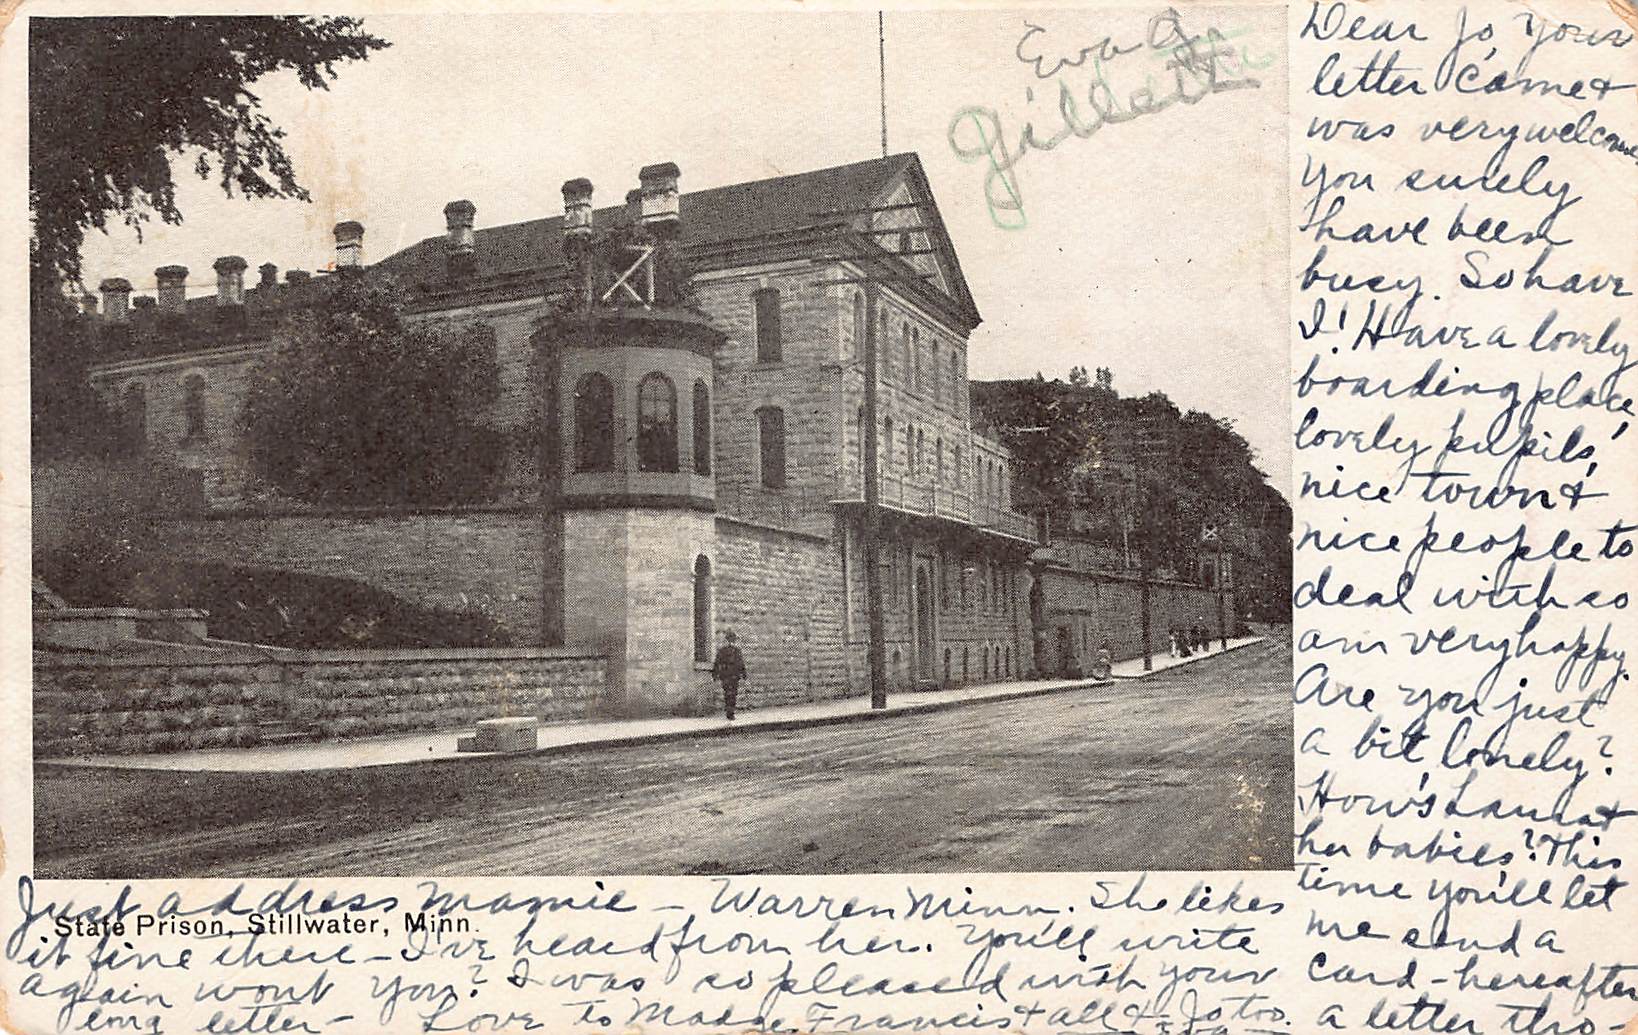 Eva G.
Gillette
Dear Jo, Your
letter came &
was very welcome.
You surely
have been
busy. So have
I! Have a lovely
boarding place,
lovely pupils,
nice town &
nice people to
deal with so
am very happy.
Are you just
a bit lonely?
How's Laura &
her babies? This
time you'll let
me send a
card - hereafter
a letter tho-
Just address Mamie - Warren Minn. She likes
State Prison, Stillwater, Minn.
it fine there - I've heard from her. You'll write
again wont you? I was so pleased with your
long letter - Love to Madge, Francis & all & Jo too.